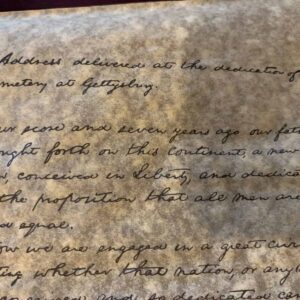 Address delivered at the dedication of
metery at Gettysburg.
ur score and seven years ago our fat
ought forth on this continent, a new
conceived in Liberty, and dedica
the proposition that all men are
d equal.
ow we are engaged in a great civi
ting whether that nation, or any n
so conceived and so dedicated can